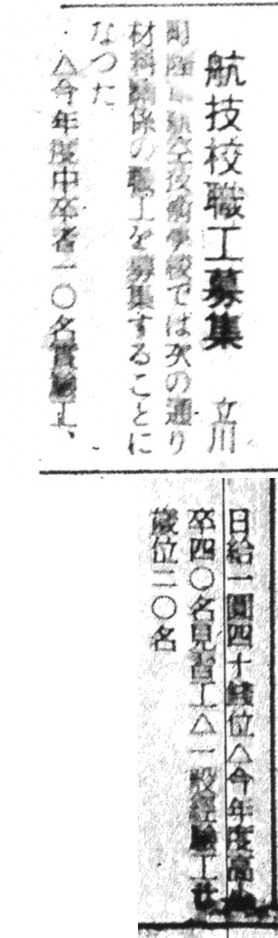 航技校職工募集 立川
町陸軍航空技術學校では次の通り
材料關係の職工を募集することに
なつた
△今年度中卒者一〇名實驗工、
日給一圓四十錢位△今年度高小
卒四〇名見習工△一般經驗工廿
歲位二〇名